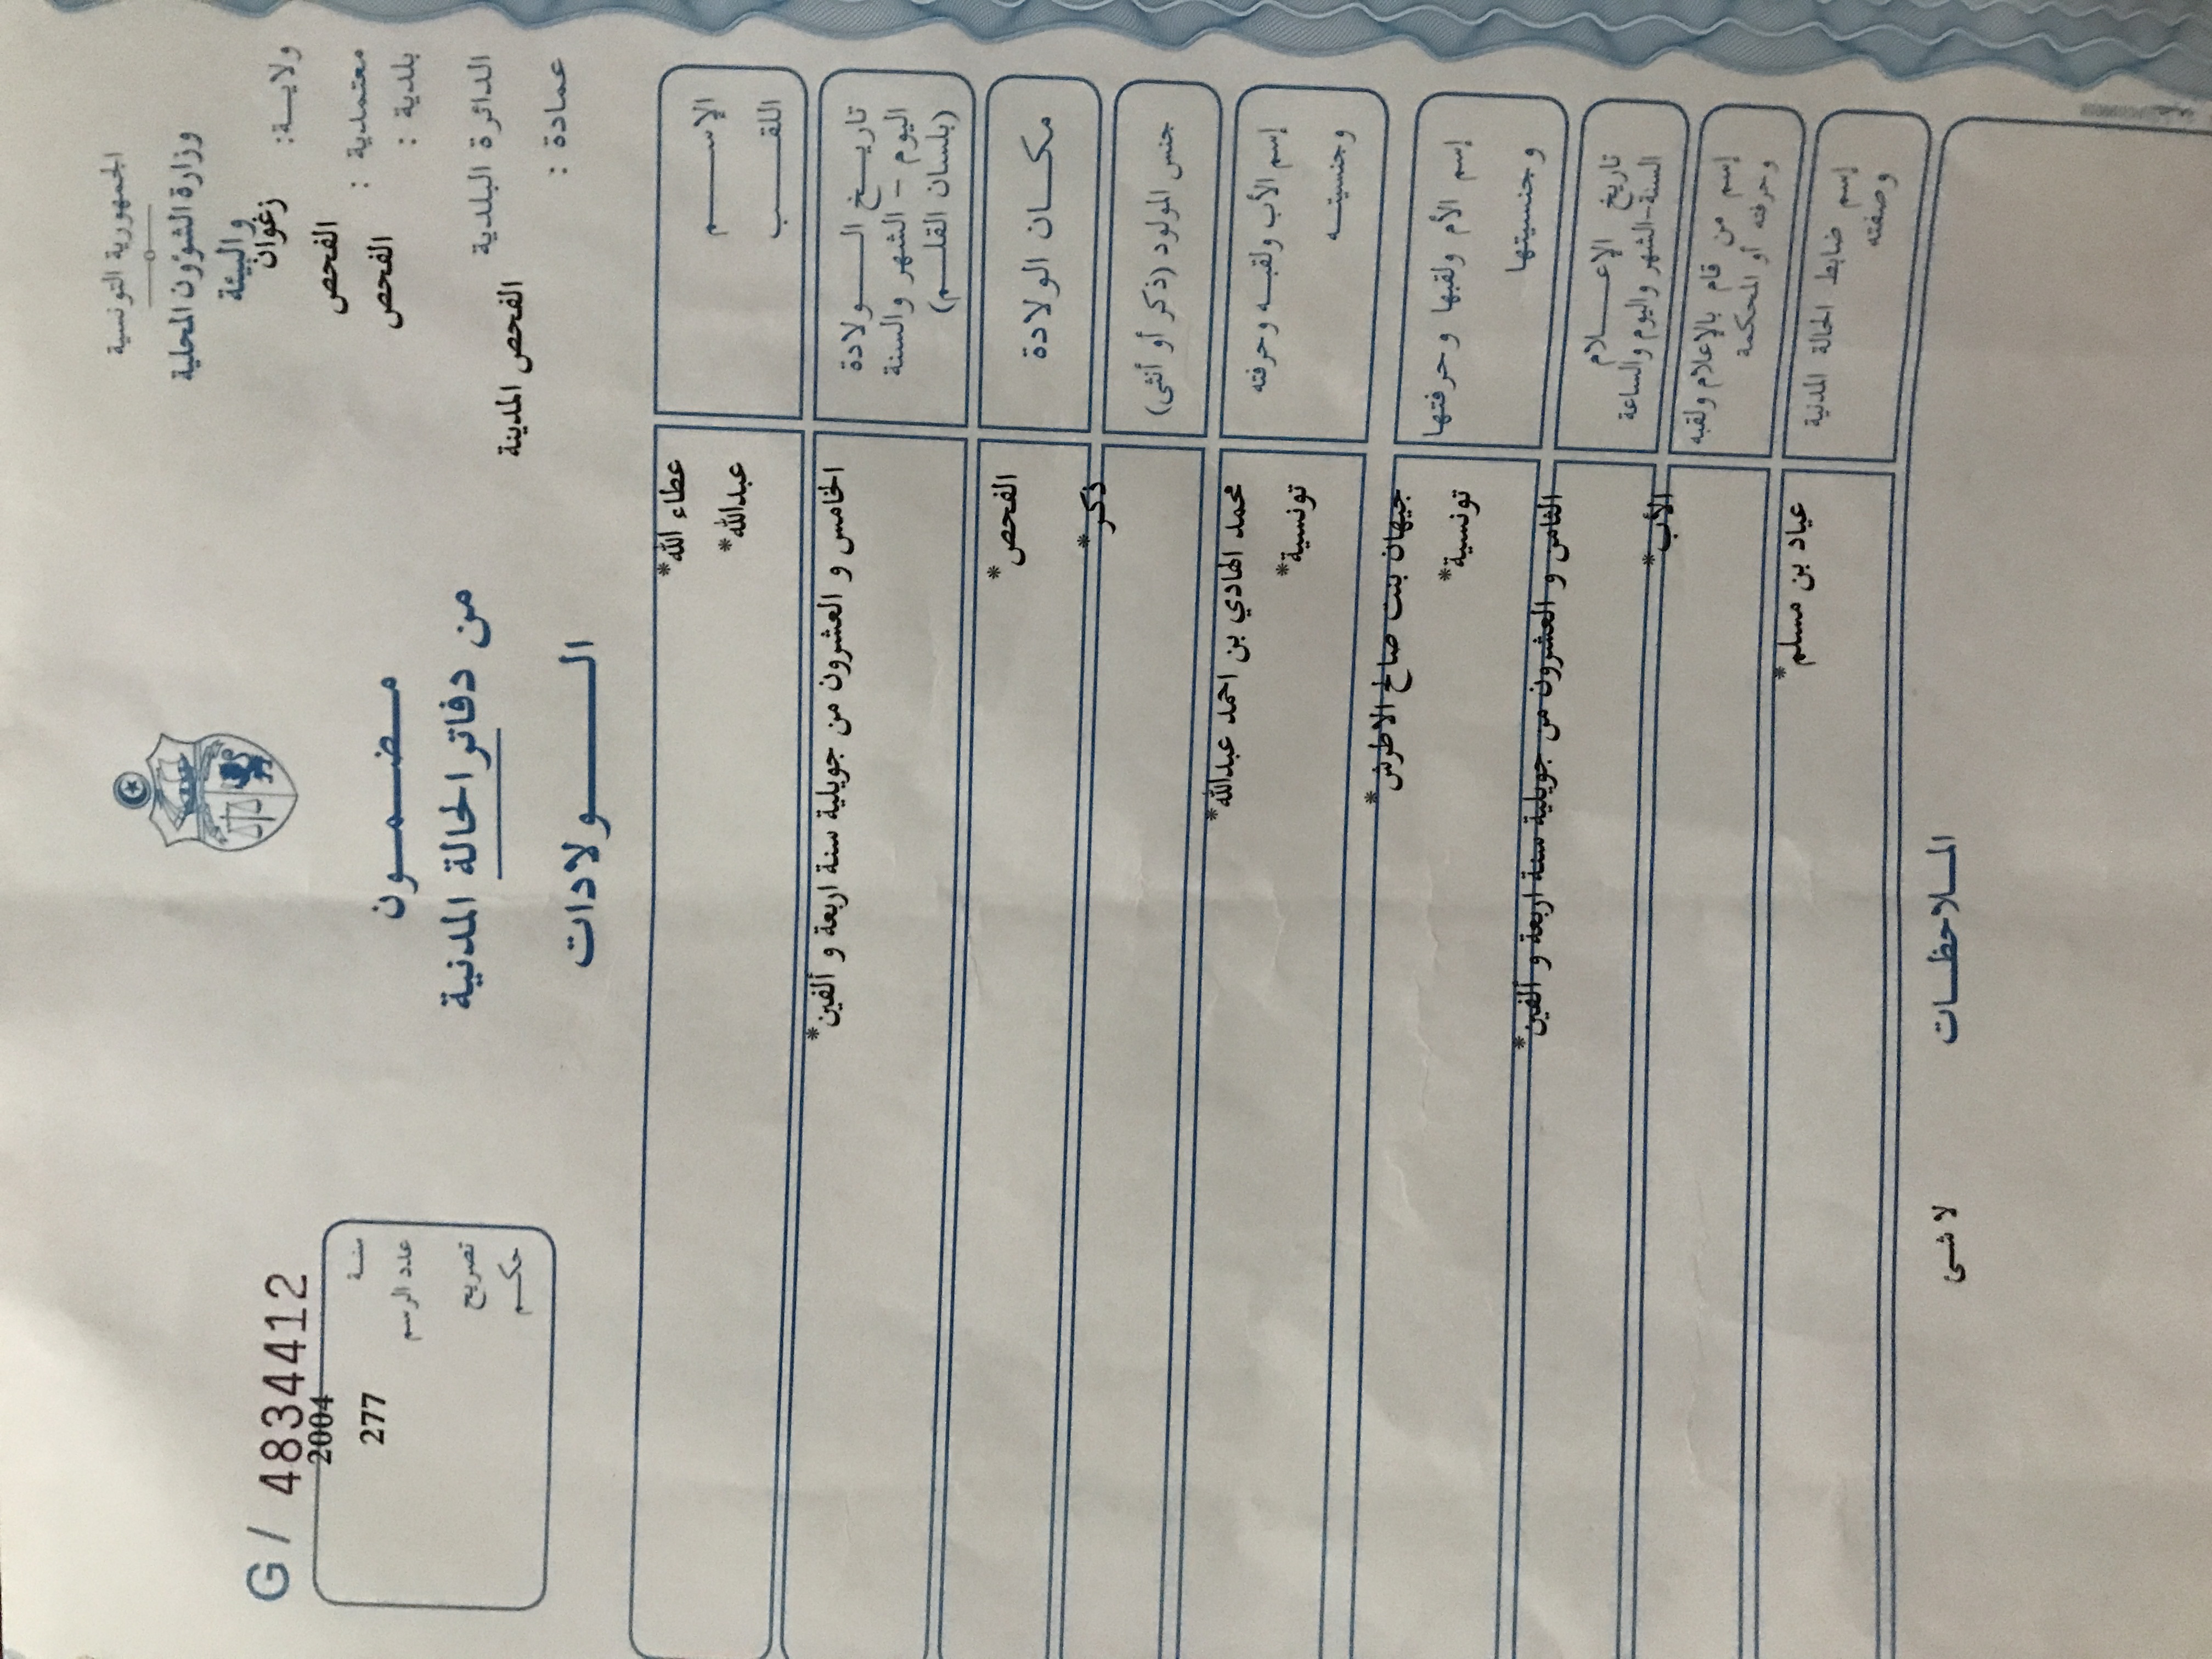 الجمهورية التونسية
وزارة الشؤون المحلية
والبيئة
ولايـــة:
زغوان
معتمدية :
الفحص
بلدية :
الفحص
الدائرة البلدية
الفحص المدينة
عمادة :
مـضـمـــون
من دفاتر الحالة المدنية
الـــولادات
G / 4834412
سنـة
2004
عدد الرسم
277
تصريح
حكـــم
الإســــــم
عطاء الله*
اللقـــــب
عبدالله*
تاريـــخ الـــــولادة
اليوم - الشهر والسنة
(بلسان القلـــم)
الخامس و العشرون من جويلية سنة اربعة و ألفين*
مكـــان الولادة
الفحص*
جنس المولود (ذكر أو أنثى)
ذكر*
إسم الأب ولقبـه وحرفته
وجنسيتـــه
محمد الهادي بن احمد عبدالله*
تونسية*
إسم الأم ولقبها وحرفتها
وجنسيتها
جيهان بنت صالح الاطرش*
تونسية*
تاريخ الإعـــــلام
السنة-الشهر واليوم والساعة
الثامن و العشرون من جويلية سنة اربعة و ألفين*
إسم من قام بالإعلام ولقبه
وحرفته أو المحكمة
الأب*
إسم ضابط الحالة المدنية
وصفته
عياد بن مسلم*
المـلاحظـــات
لا شى